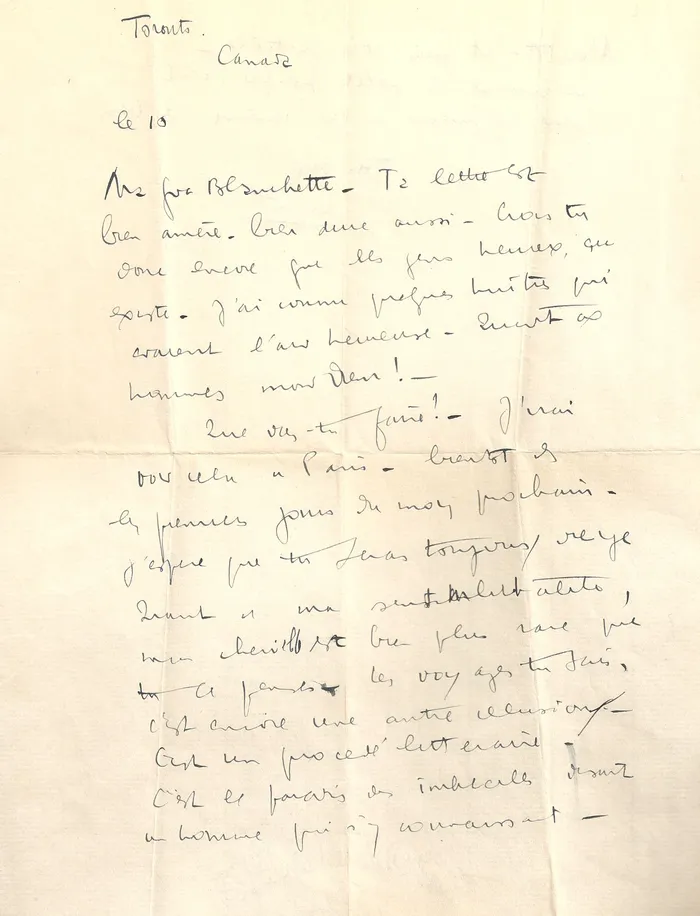 Toronto.
Canada
le 10
Ma Blanchette – Ta lettre est
bien amère – bien dure aussi – Crois tu
donc encore que les gens heureux, ça
existe – J'ai connu quelques huîtres qui
avaient l'air heureuse – Quant aux
hommes mon Dieu ! –
Que vas-tu faire ! – J'irai
voir cela à Paris – bientôt
les premiers jours du mois prochain –
j'espère que tu seras toujours
Quant à ma sentimentalité,
mon est bien plus rare que
tu le penses – Les voyages tu sais,
c'est encore une autre illusion –
C'est un procédé littéraire –
C'est le paradis des imbéciles disait
un homme qui s'y connaissait –